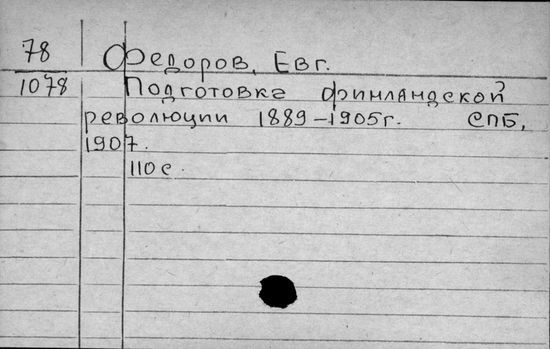 78 Федоров, Евг.
1078 Подготовка финландской
революции 1889-1905г. СПБ,
1907.
110 с.